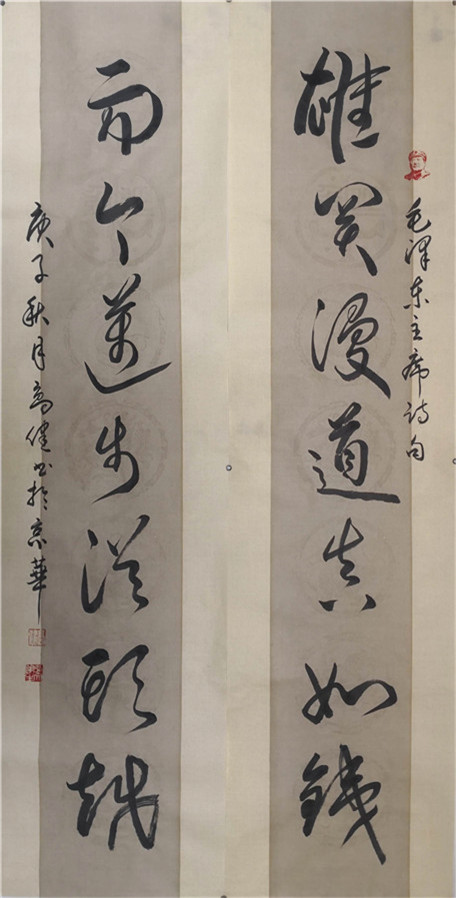 毛泽东主席诗句
雄关漫道真如鐵
而今邁步從頭越
庚子秋月高健书於京華